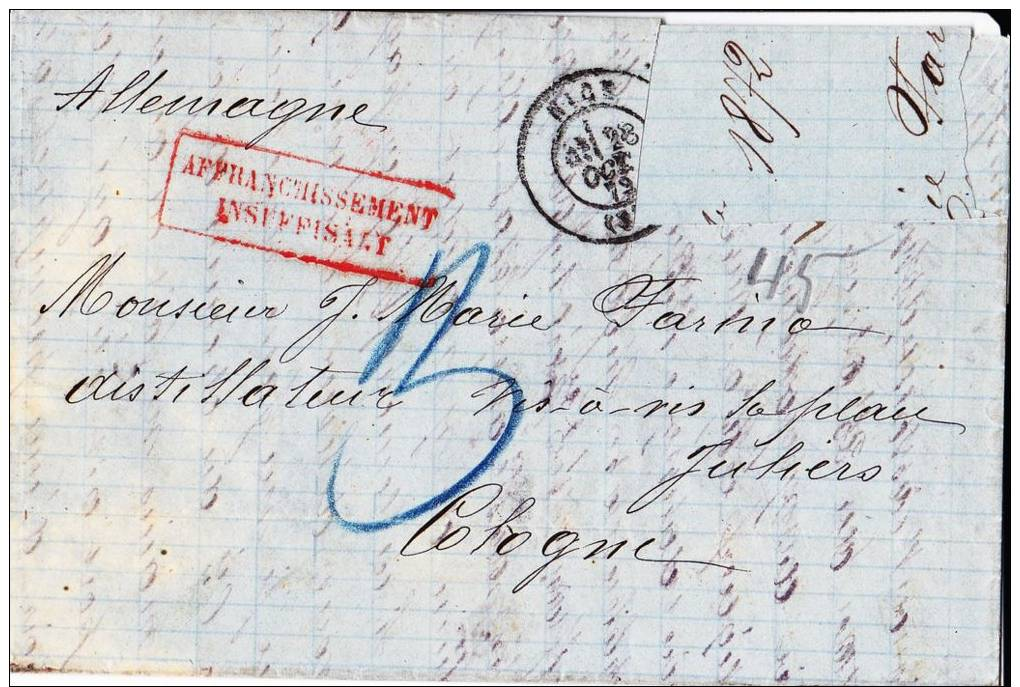 Allemagne
NICE
28
OCT
1872
AFFRANCHISSEMENT
INSUFFISALT
3
45
Monsieur J. Marie Farina
distillateur vis-à-vis la plau
Juliers
Cologne